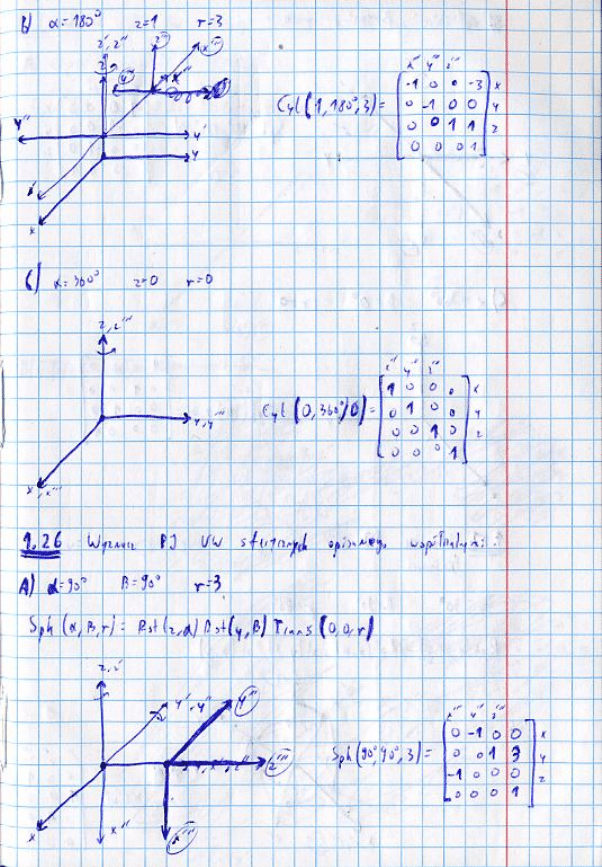 B) α=180° z=1 r=3
z', z''
z'''
x'''
y'''
y''
y'
y
x
Cyl(1,180°,3)=
x''' y''' z'''
-1 0 0 -3 x
0 -1 0 0 y
0 0 1 1 z
0 0 0 1
C) α=360° z=0 r=0
z, z'''
y, y'''
x, x'''
Cyl(0,360°,0)=
x''' y''' z'''
1 0 0 0 x
0 1 0 0 y
0 0 1 0 z
0 0 0 1
1.26 Wyznacz PJ UW sferycznych opisanego współrzędnymi:
A) α=90° B=90° r=3
Sph(α,B,r)= Rot(z,α) Rot(y,B) Trans(0,0,r)
z, z'
y', y''
y'''
z'''
x
x''
x'''
Sph(90°,90°,3)=
x''' y''' z'''
0 -1 0 0 x
0 0 1 3 y
-1 0 0 0 z
0 0 0 1